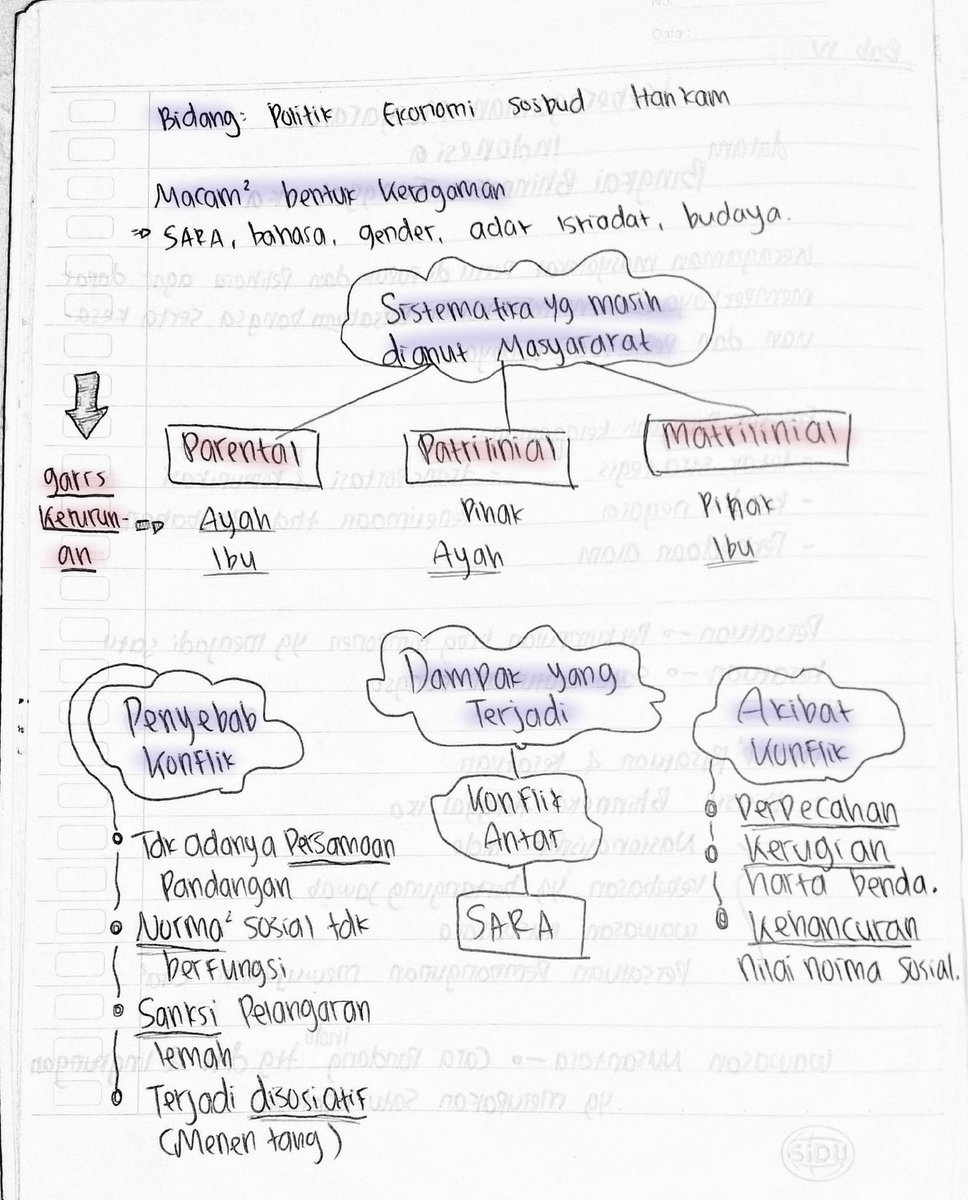 Date:
Bidang: Politik Ekonomi sosbud Hankam
Macam² bentuk keragaman
⇒ SARA, bahasa, gender, adat istiadat, budaya.
Sistematika yg masih
dianut Masyararat
Parental
Patrilinial
Matrilinial
garis
keturun-
an
⇒ Ayah
Ibu
Pihak
Ayah
Pihak
Ibu
Penyebab
Konflik
Tdk adanya Persamaan
Pandangan
Norma² sosial tdk
berfungsi
Sanksi Pelangaran
lemah
Terjadi disosiatif
(Menentang)
Dampak yang
Terjadi
Konflik
Antar
SARA
Akibat
Konflik
Perpecahan
Kerugian
harta benda.
Kehancuran
nilai norma sosial.
SiDU